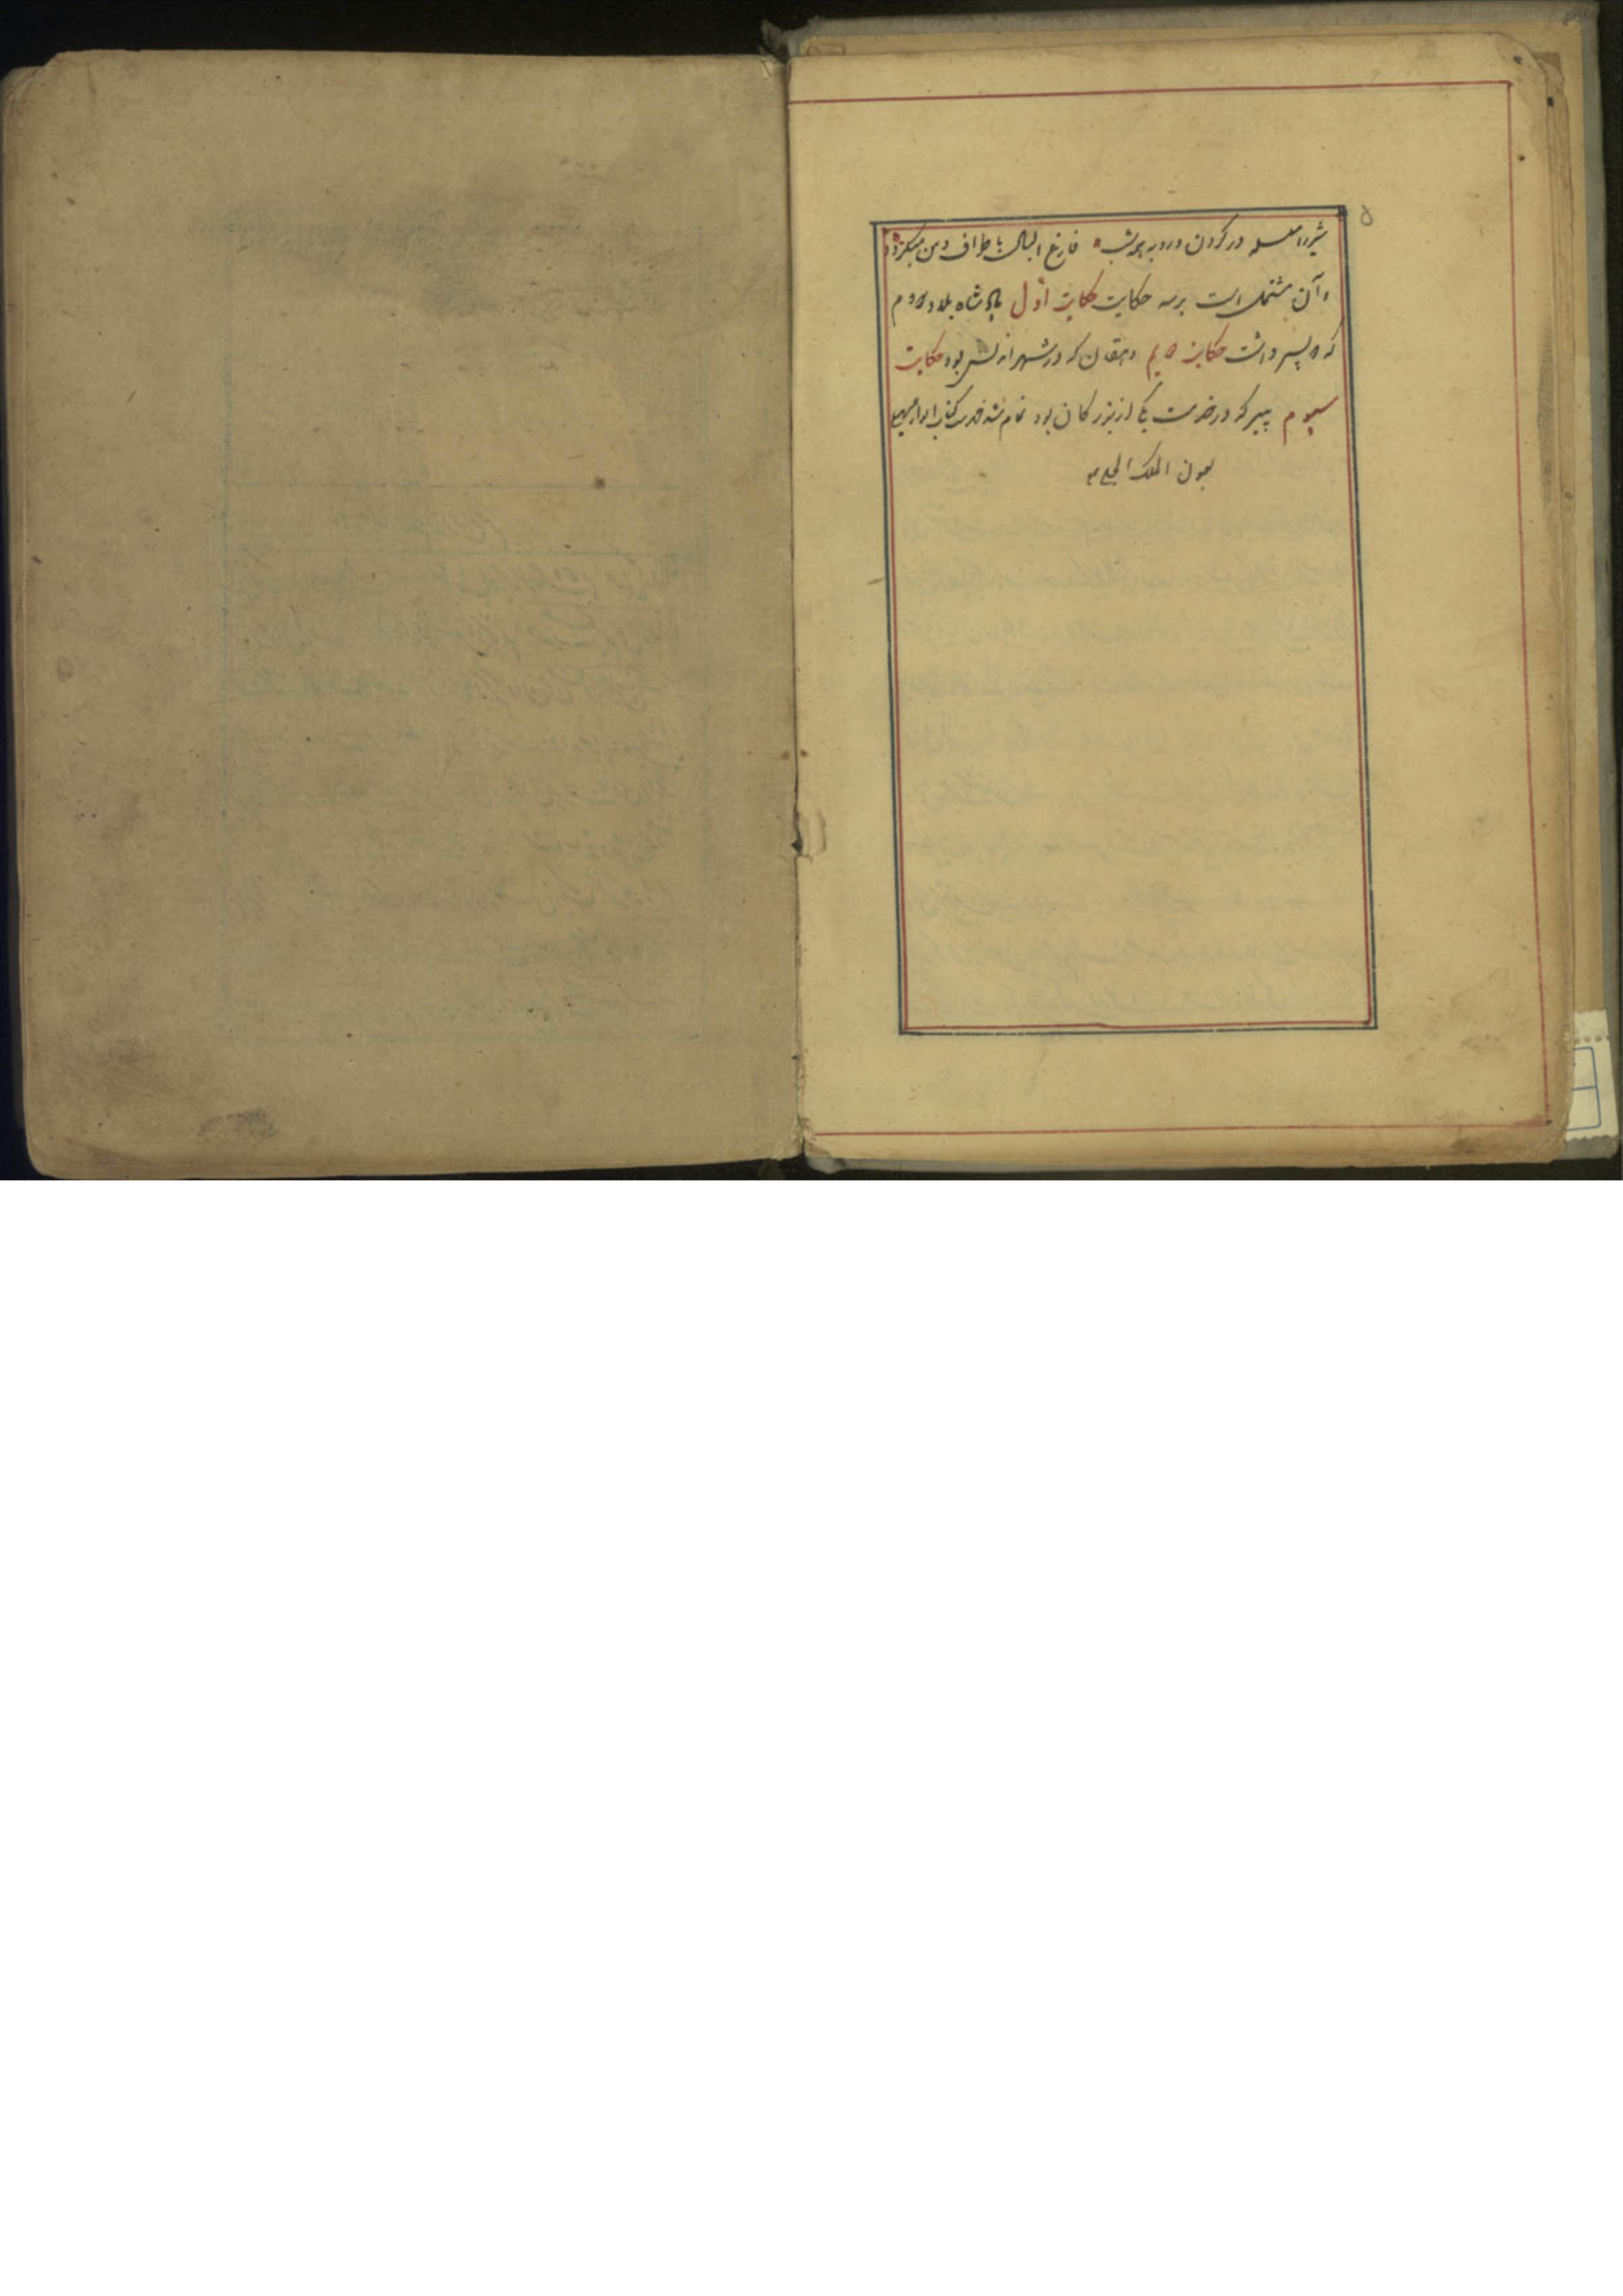 ۵
شیر را سلسله در گردن و روبه همه شب فارغ البال باطراف دمن میگردد
و آن مشتمل است بر سه حکایت حکایت اول پادشاه بلاد روم
که دو پسر داشت حکایت دویم دهقان که در شهر اندلس بود حکایت
سیوم پیر که در خدمت یکی از بزرگان بود تمام شد فهرست کتاب انوار سهیلی
بعون الملک